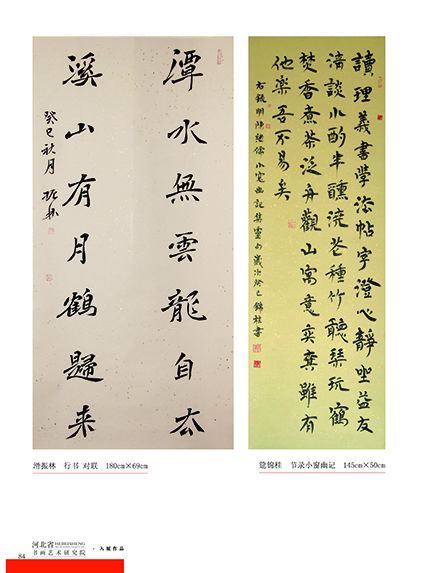 潭水無雲龍自去
溪山有月鶴歸来
癸巳秋月 振林
讀理義書學法帖字澄心靜坐益友
清談小酌半醺澆花種竹聽琴玩鶴
焚香煮茶泛舟觀山寓意奕棊雖有
他樂吾不易矣
右錄明陳繼儒小窗幽記 歲次癸巳錦桂書
滑振林 行书 对联 180cm×69cm
锦桂 节录小窗幽记 145cm×50cm
84
河北省 HEBEISHENG
书画艺术研究院 · 入展作品